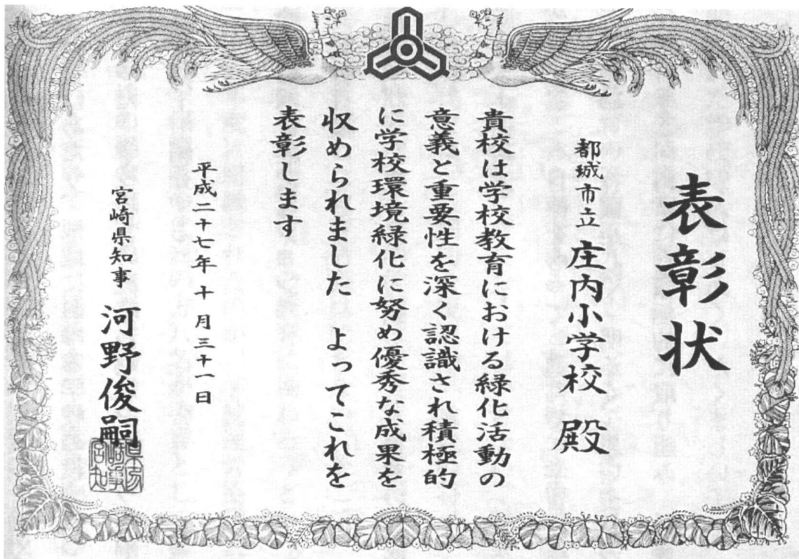 表彰状
都城市立 庄内小学校 殿
貴校は学校教育における緑化活動の
意義と重要性を深く認識され積極的
に学校環境緑化に努め優秀な成果を
収められました よってこれを
表彰します
平成二十七年十月三十一日
宮崎県知事 河野俊嗣